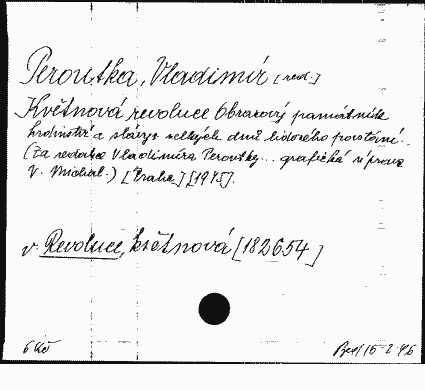 Peroutka, Vladimír [red.]
Květnová revoluce Obrazový památník
hrdinství a slávy velkých dnů lidového povstání..
(Za redakce Vladimíra Peroutky... grafická úprava
V. Michal.) [Praha] [1945].
v. Revoluce, květnová [182654]
6 Kč
15-2-46